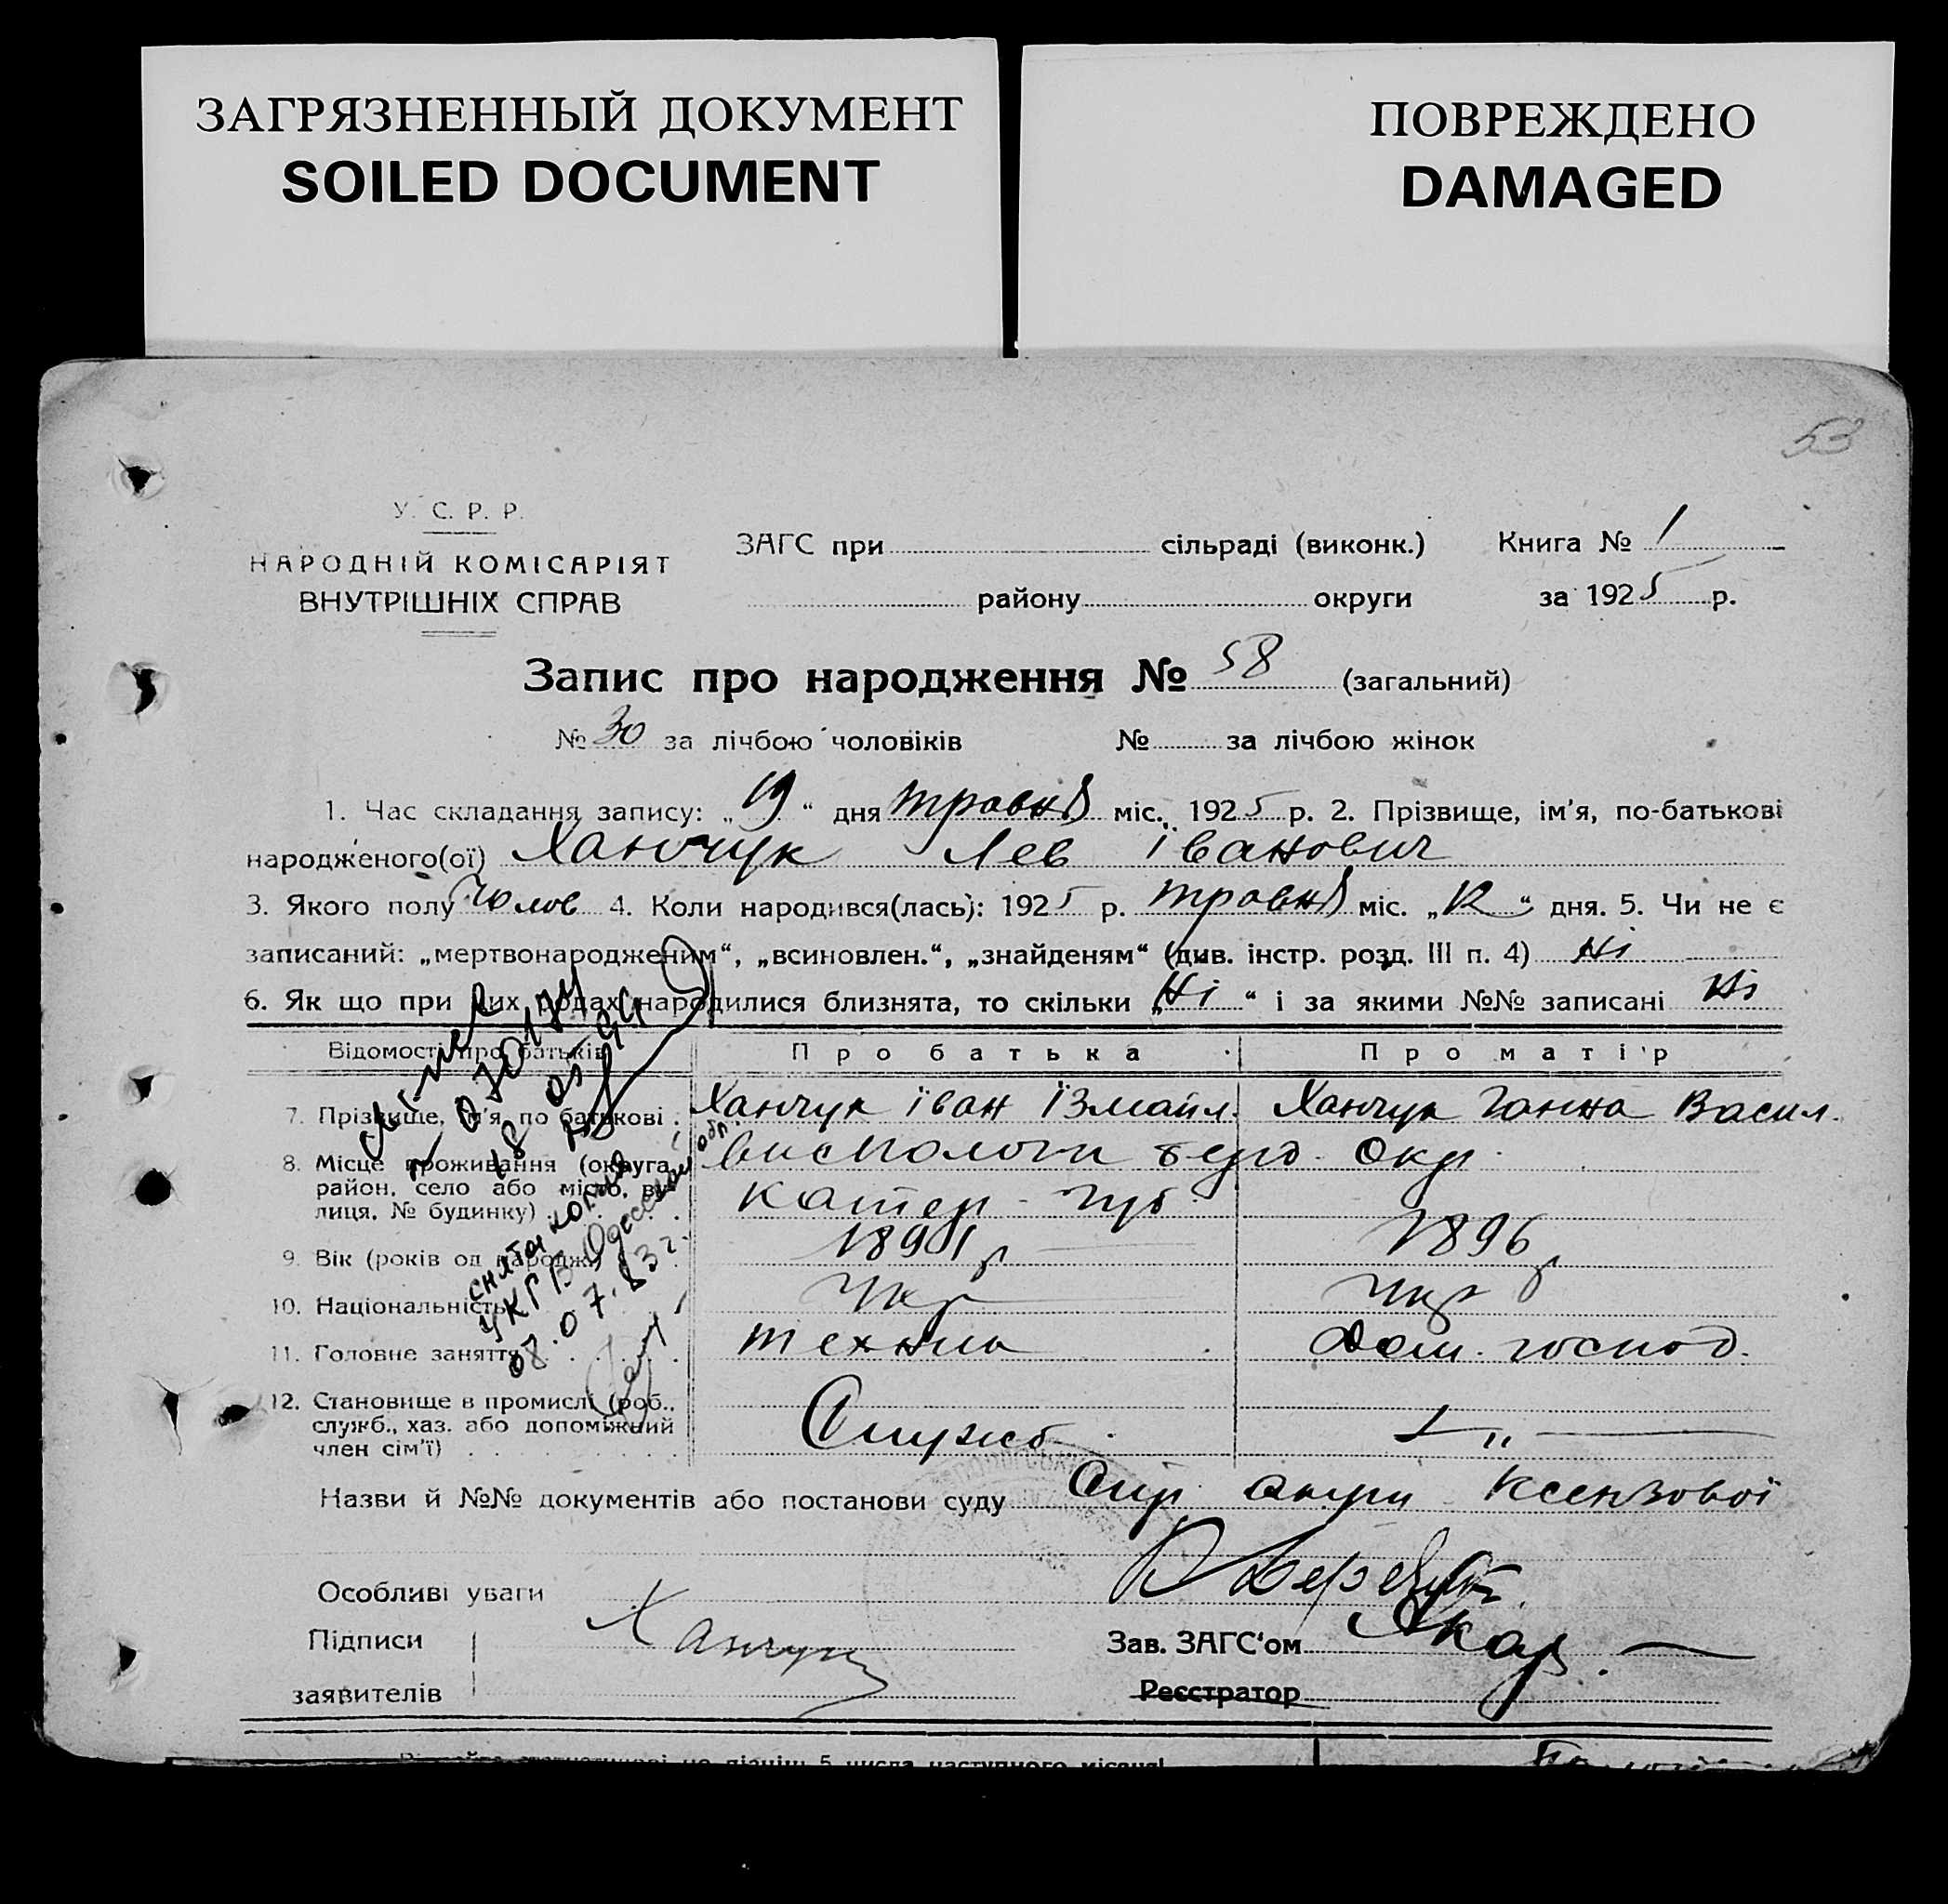 ЗАГРЯЗНЕННЫЙ ДОКУМЕНТ
SOILED DOCUMENT
ПОВРЕЖДЕНО
DAMAGED
53
У. С. Р. Р.
НАРОДНІЙ КОМІСАРІЯТ
ВНУТРІШНІХ СПРАВ
ЗАГС при сільраді (виконк.) Книга № 1
району округи за 1925 р.
Запис про народження № 58 (загальний)
№ 30 за лічбою чоловіків № за лічбою жінок
1. Час складання запису: „19“ дня травня міс., 1925 р. 2. Прізвище, ім’я, по-батькові
народженого(ої) Ханчук Лев Іванович
3. Якого полу Чолов 4. Коли народився(лась): 1925 р. травня міс. „12“ дня. 5. Чи не є
записаний: „мертвонародженим“, „всиновлен.“, „знайденям“ (див. інстр. розд. III п. 4) Ні
6. Як що при цих родах народилися близнята, то скільки „Ні“ і за якими №№ записані Ні
Відомості про батьків Про батька Про матір
7. Прізвище, ім’я, по батькові Ханчук Іван Ізмаїл. Ханчук Ганна Васил.
8. Місце проживання (округа, район, село або місто, вулиця, № будинку) окр.
Катер. губ.
9. Вік (років од народж.) 1891 р 1896 р
10. Національність Укр Укр
11. Головне заняття технік Дом. господ.
12. Становище в промислі (роб., служб., хаз. або допоміжний член сім’ї) Служб. „
снята копия
УКГБ Одесской обл.
08.07.83 г.
Назви й №№ документів або постанови суду акуш Ксензової
Особливі уваги
Підписи Ханчук
заявителів
Зав. ЗАГС‘ом
Реєстратор
5 числа наступного місяця!